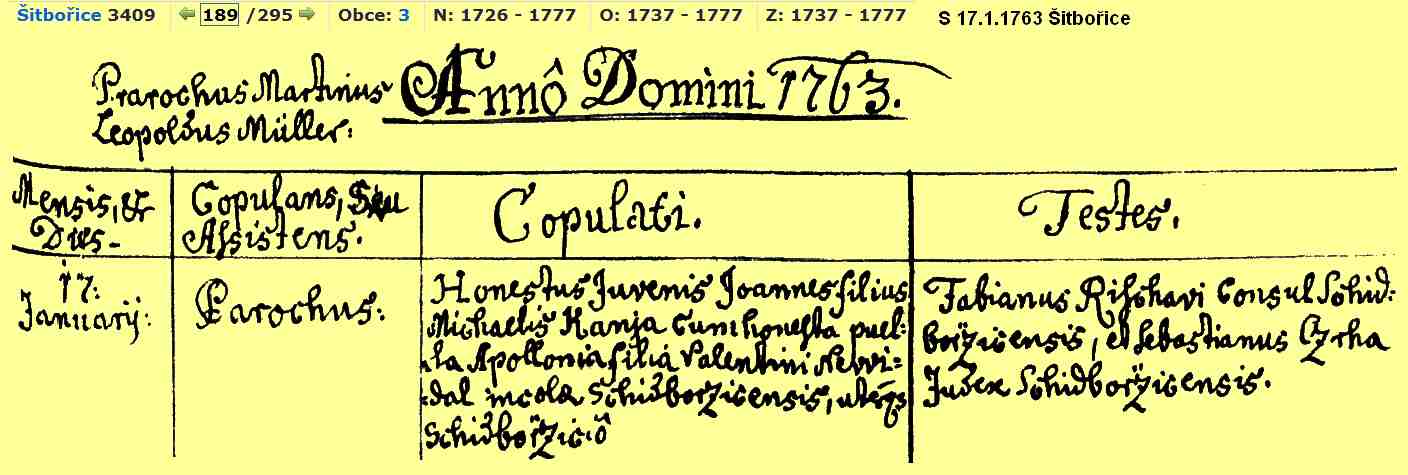 Šitbořice 3409 189 /295 Obce: 3 N: 1726 - 1777 O: 1737 - 1777 Z: 1737 - 1777 S 17.1.1763 Šitbořice
Parochus Martinus
Leopoldus Müller:
Annô Domini 1763.
Mensis, &
Dies-
Copulans, Seu
Assistens.
Copulati.
Testes.
17:
Januarij:
Parochus:
Honestus Juvenis Joannes filius
Michaelis Kanja cum honesta puel-
la Apollonia filia Valentini Nevvi-
dal incolæ Schidboržicensis, uterq3
Schidboržiciô
Fabianus Rischavi Consul Schid-
boržicensis, et Sebastianus Czrha
Judex Schidboržicensis.